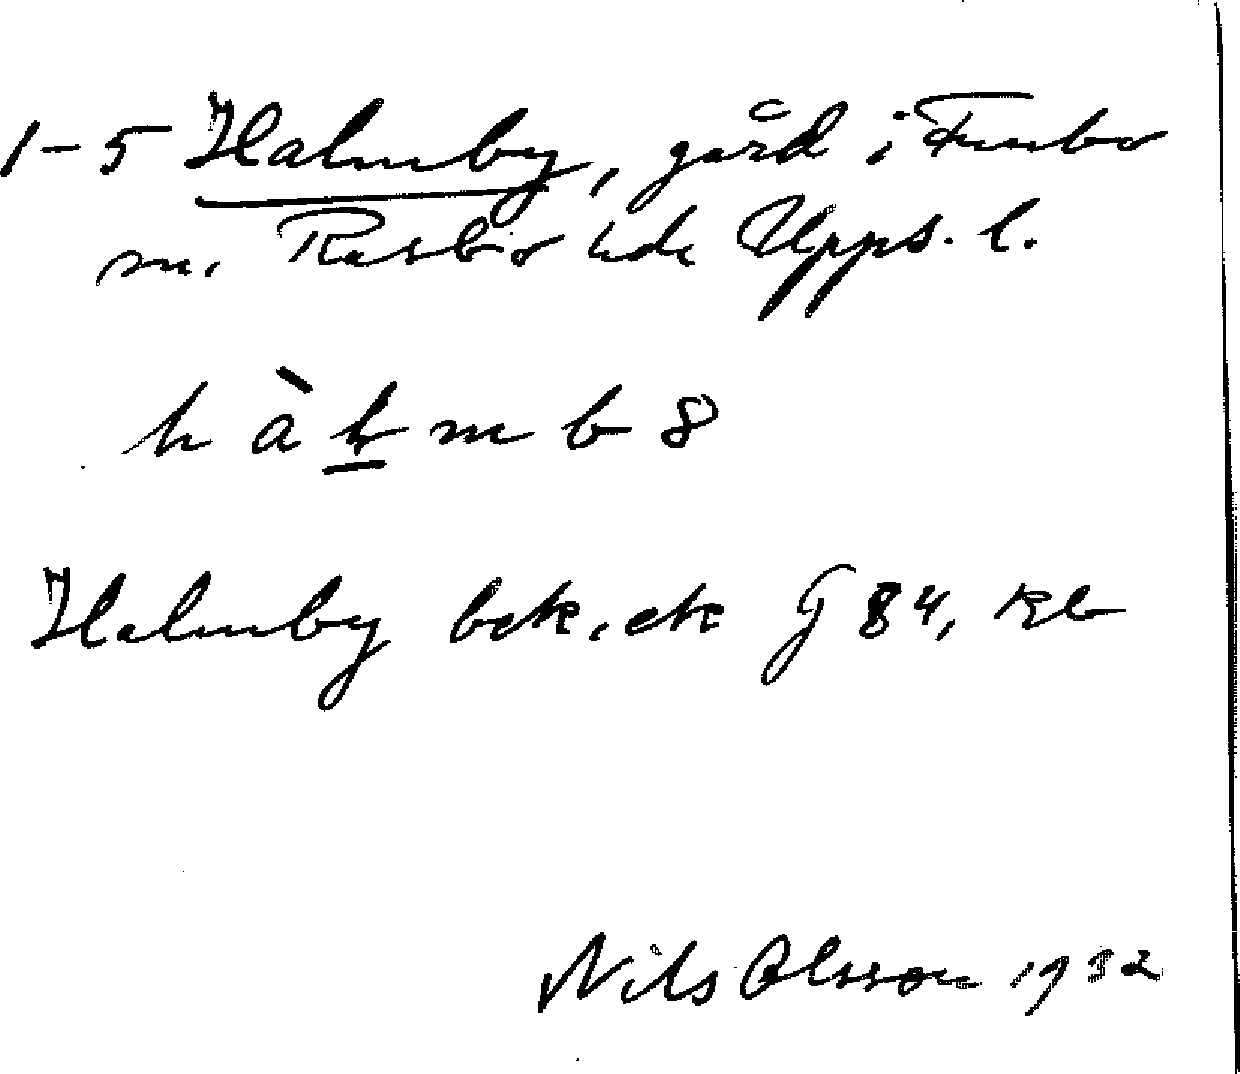 1-5 Halmby, gård i Funbo
sn. Rasbo hde Upps. l.
h à ł m b 8
Halmby bok. ek G 84, Kb
Nils Olsson 1932